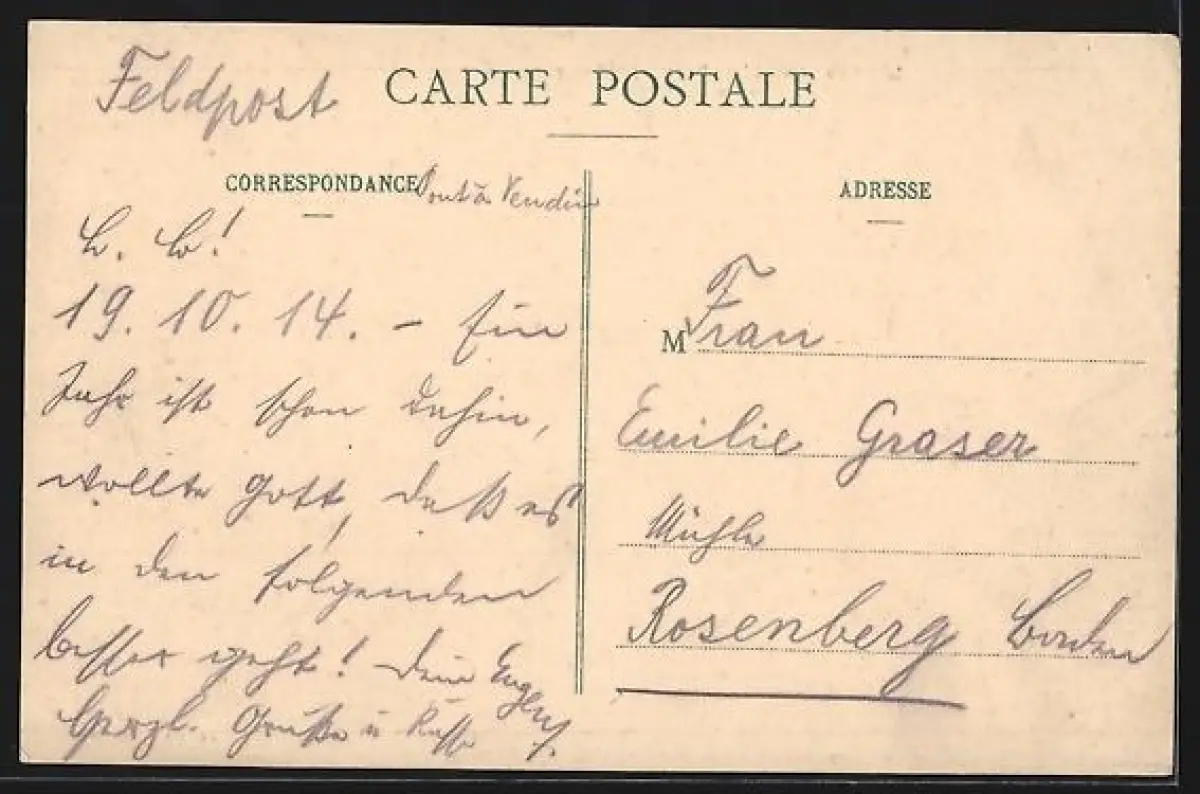 Feldpost
CARTE POSTALE
CORRESPONDANCE
Pont à Vendin
L. L!
19. 10. 14. – Ein
Jahr ist schon dahin,
wollte Gott, daß es
in den folgenden
besser geht! Dein
Herzl. Grüße u Küsse
ADRESSE
M Frau
Emilie Graser
Mühle
Rosenberg Baden